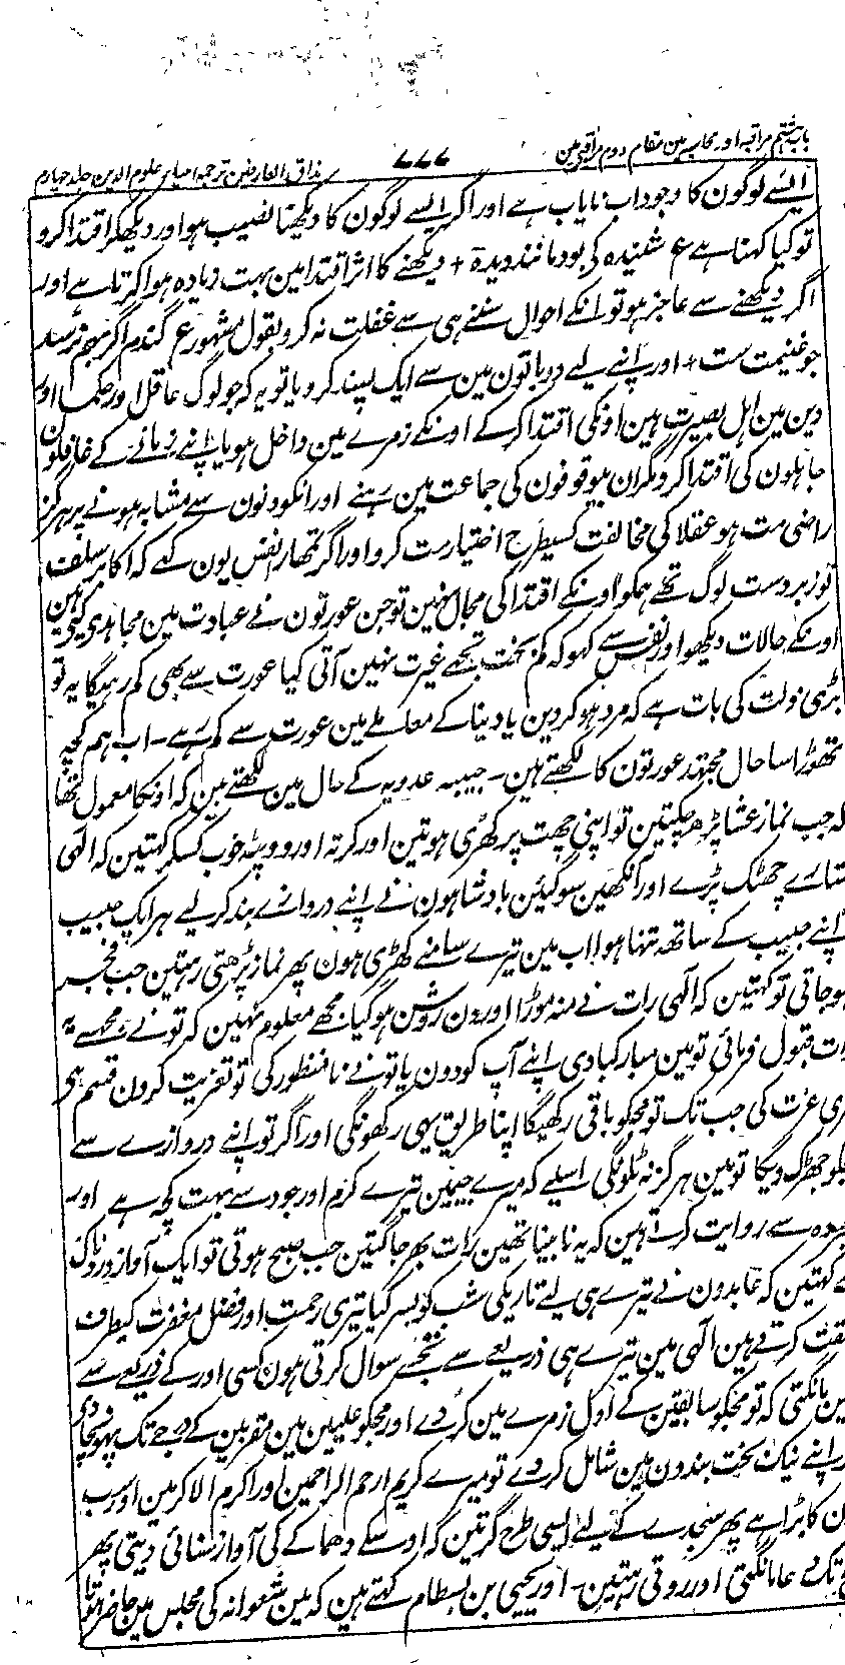 باب ہشتم مراقبہ اور محاسبہ مین مقام دوم مراقبی مین
۷۷۷
مذاق العارفین ترجمہ احیاء علوم الدین جلد چہارم
ایسے لوگون کا وجود اب نایاب ہے اور اگر ایسے لوگون کا دیکھنا نصیب ہو اور دیکھکر اقتدا کرو
تو کیا کہنا ہے ع شنیدہ کی بود مانند دیدہ + دیکھنے کا اثر اقتدا مین بہت زیادہ ہوا کرتا ہے اور
اگر دیکھنے سے عاجز ہو تو انکے احوال سننے ہی سے غفلت نہ کرو بقول مشہور ع گندم اگر بہم نرسد
جو غنیمت ست + اور اپنے لیے دو باتون مین سے ایک پسند کرو یا تو یہ کہ جو لوگ عاقل اور حکما اور
دین مین اہل بصیرت ہین اونکی اقتدا کرکے اونکے زمرے مین داخل ہو یا اپنے زمانے کے غافلون
جاہلون کی اقتدا کرو مگر ان بیوقوفون کی جماعت مین رہنے اور انکو دونون سے مشابہ ہونے پر ہرگز
راضی مت ہو عقلا کی مخالفت کسیطرح اختیار مت کرو اور اگر تمھارا نفس یون کہے کہ اکابر سلف
تو زبردست لوگ تھے ہمکو اونکے اقتدا کی مجال نہین تو جن عورتون نے عبادت مین مجاہدی کیے ہین
اونکے حالات دیکھو اور نفس سے کہو کہ کم بخت تجھے غیرت نہین آتی کیا عورت سے بھی کم رہیگا یہ تو
بڑی ذلت کی بات ہے کہ مرد ہو کر دین یا دنیا کے معاملے مین عورت سے کم رہے - اب ہم کچھ
تھوڑا سا حال مجتہد عورتون کا لکھتے ہین - حبیبہ عدویہ کے حال مین لکھتے ہین کہ اونکا معمول تھا
کہ جب نماز عشا پڑھ چکتین تو اپنی چھت پر کھڑی ہوتین اور کرتہ اور دوپٹہ خوب کسکر کہتین کہ الٰہی
ستارے چھٹک پڑے اور آنکھین سوگئین بادشاہون نے اپنے دروازے بند کر لیے ہر ایک حبیب
اپنے حبیب کے ساتھ تنہا ہوا اب مین تیرے سامنے کھڑی ہون پھر نماز پڑھتی رہتین جب فجر
ہوجاتی تو کہتین کہ الٰہی رات نے منہ موڑا اور دن روشن ہو گیا مجھے معلوم نہین کہ تونے مجھسے یہ
رات قبول فرمائی تو مین مبارکبادی اپنے آپ کو دون یا تونے نامنظور کی تو تعزیت کرون قسم ہی
تیری عزت کی جب تک تو مجکو باقی رکھیگا اپنا طریق یہی رکھونگی اور اگر تو اپنے دروازے سے
مجکو جھڑک دیگا تو مین ہرگز نہ ٹلونگی اسلیے کہ میرے جی مین تیرے کرم اور جود سے بہت کچھ ہے اور
سے روایت کرتے ہین کہ یہ نابینا تھین رات بھر جاگتین جب صبح ہوتی تو ایک آواز دردناک
سے کہتین کہ عابدون نے تیرے ہی لیے تاریکی شب کو بسر کیا تیری رحمت اور فضل مغفرت کیطرف
سبقت کرتے ہین الٰہی مین تیرے ہی ذریعے سے تجھسے سوال کرتی ہون کسی اور کے ذریعے سے
نہین مانگتی کہ تو مجکو سابقین کے اول زمرے مین کردے اور مجکو علیین مین مقربین کے درجے تک پہونچا دی
اور اپنے نیک بخت بندون مین شامل کردے تو میرے کریم ارحم الراحمین اور اکرم الاکرمین اور سب
کا بڑا ہے پھر سجدے کے لیے ایسی طرح گرتین کہ اوسکے دھماکے کی آواز سنائی دیتی پھر
تک دعا مانگتی اور روتی رہتین - اور یحیی بن بسطام کہتے ہین کہ مین شعوانہ کی مجلس مین حاضر ہوتا